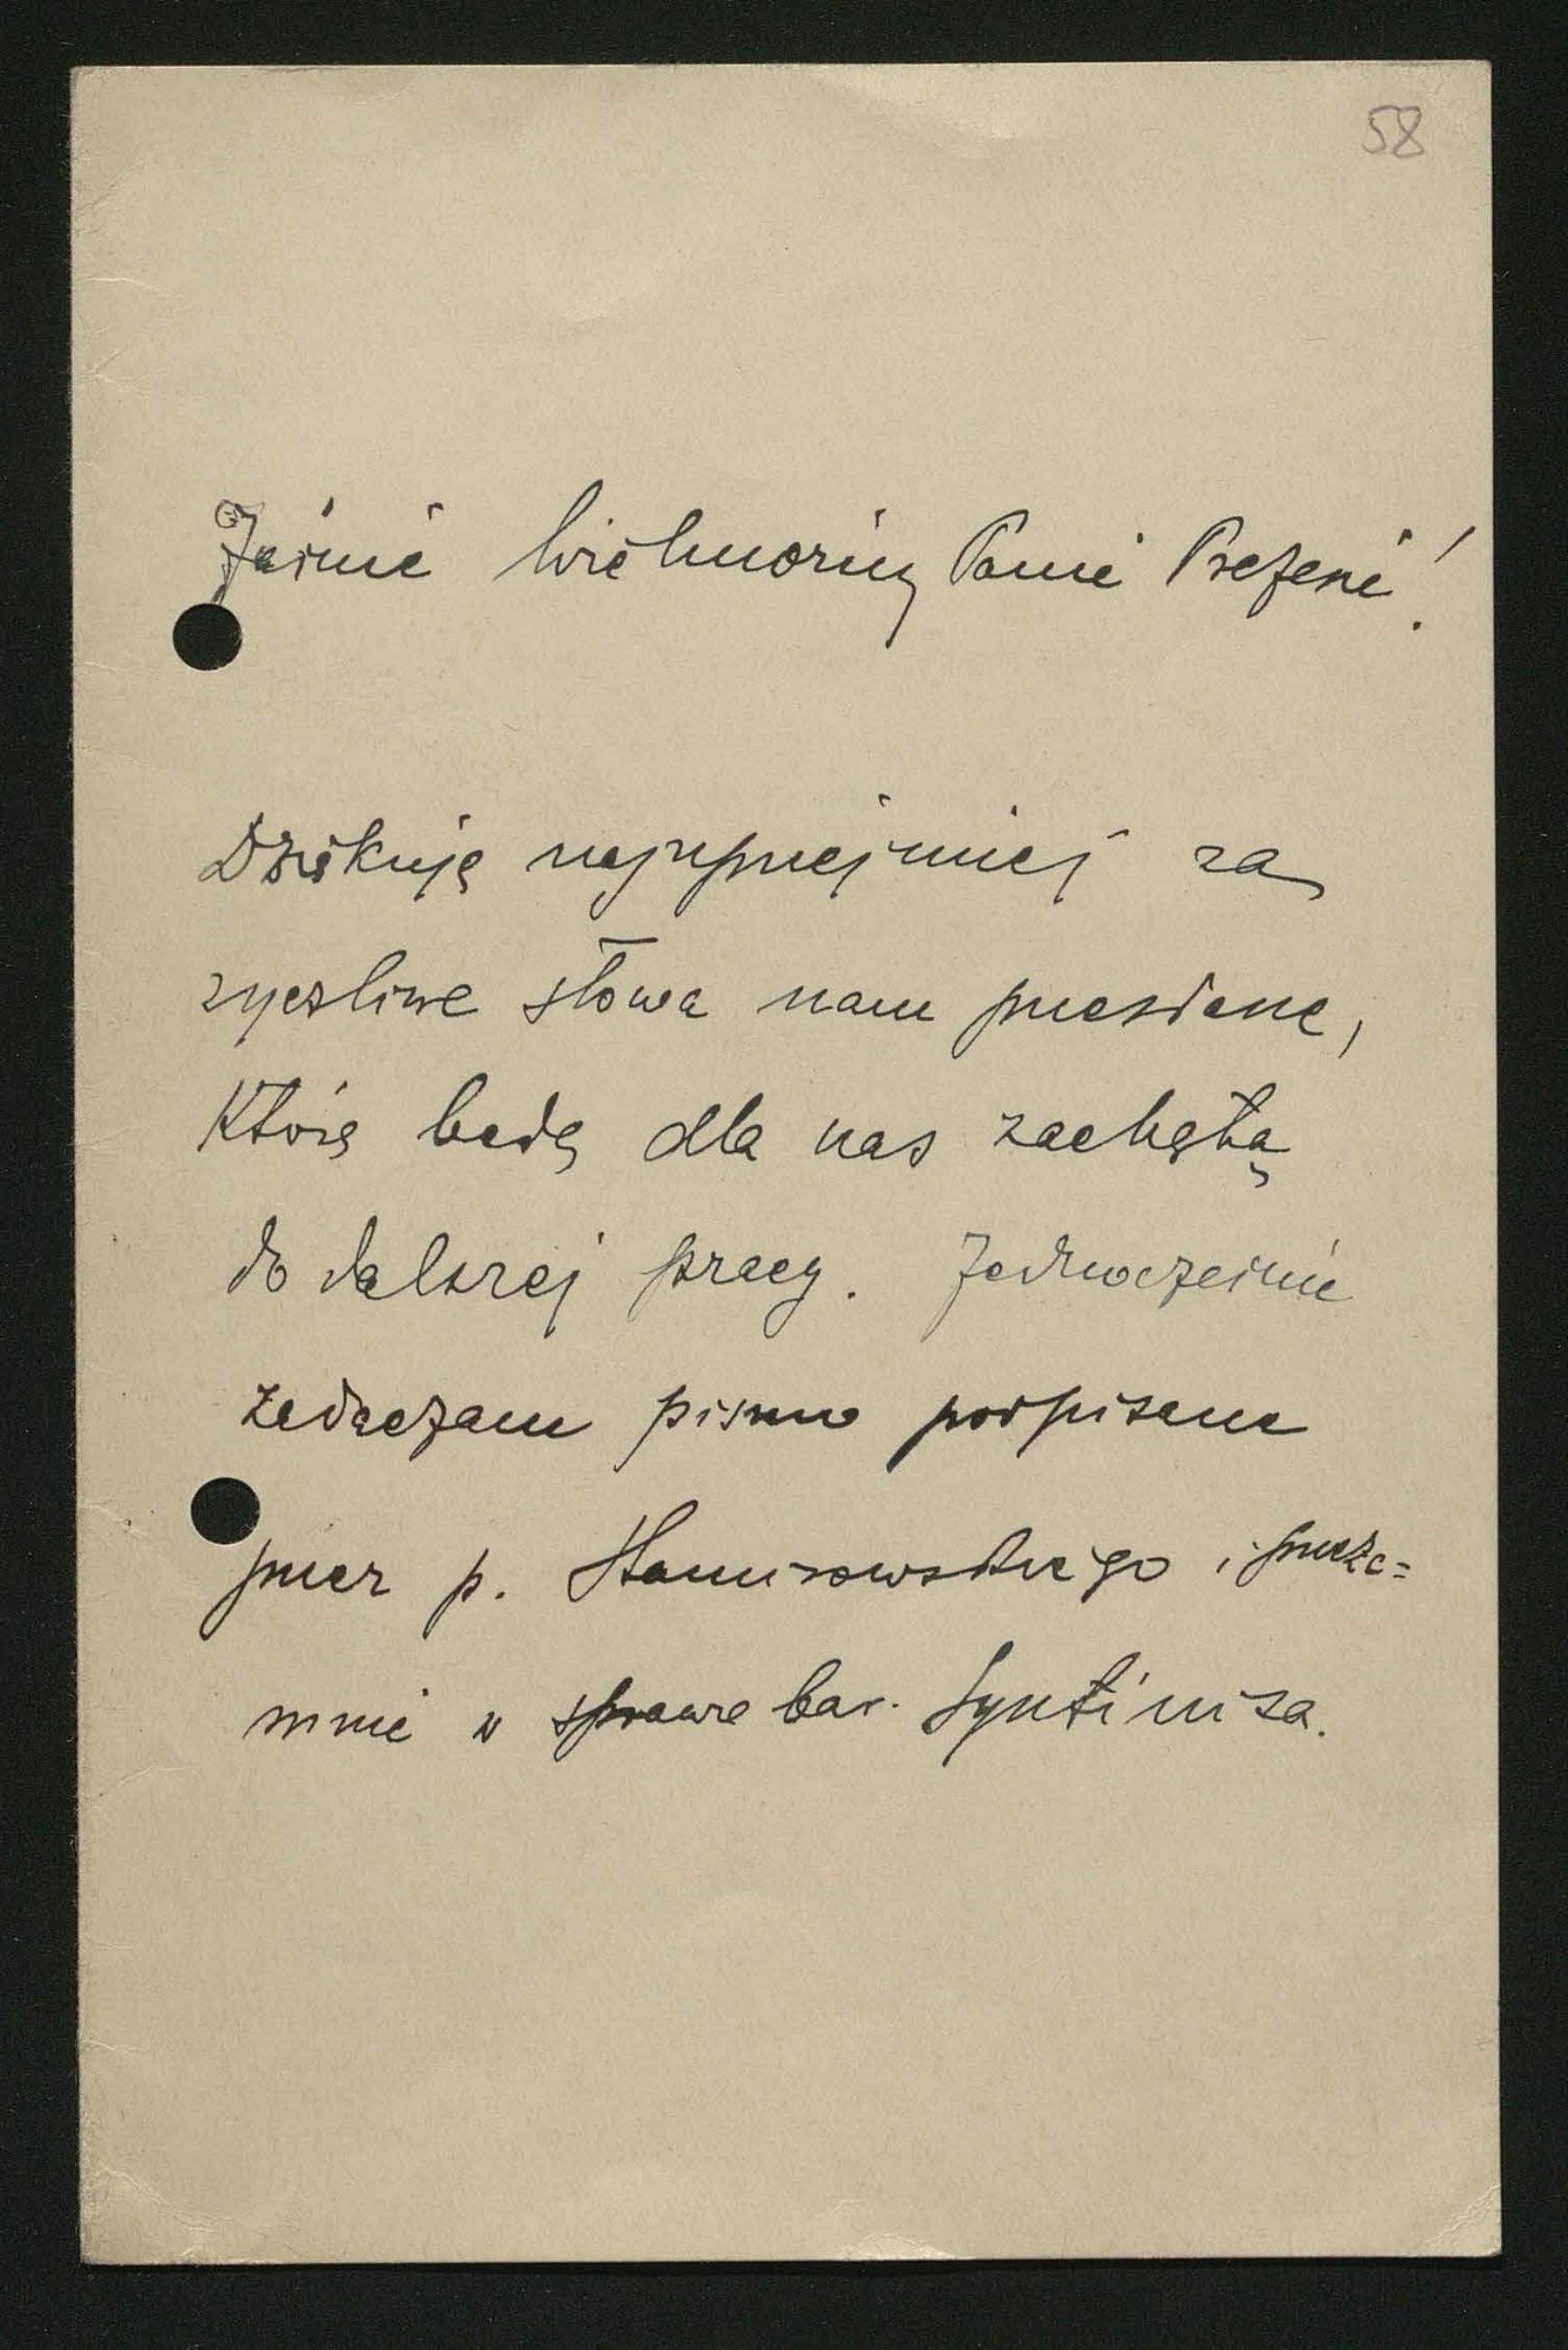 58
Jaśnie Wielmożny Panie Prezesie!
Dziękuję najuprzejmiej za
życzliwe słowa nam przesłane,
które będą dla nas zachętą
do dalszej pracy. Jednocześnie
załączam pismo podpisane
przez p. i przeze=
mnie w sprawie bar.